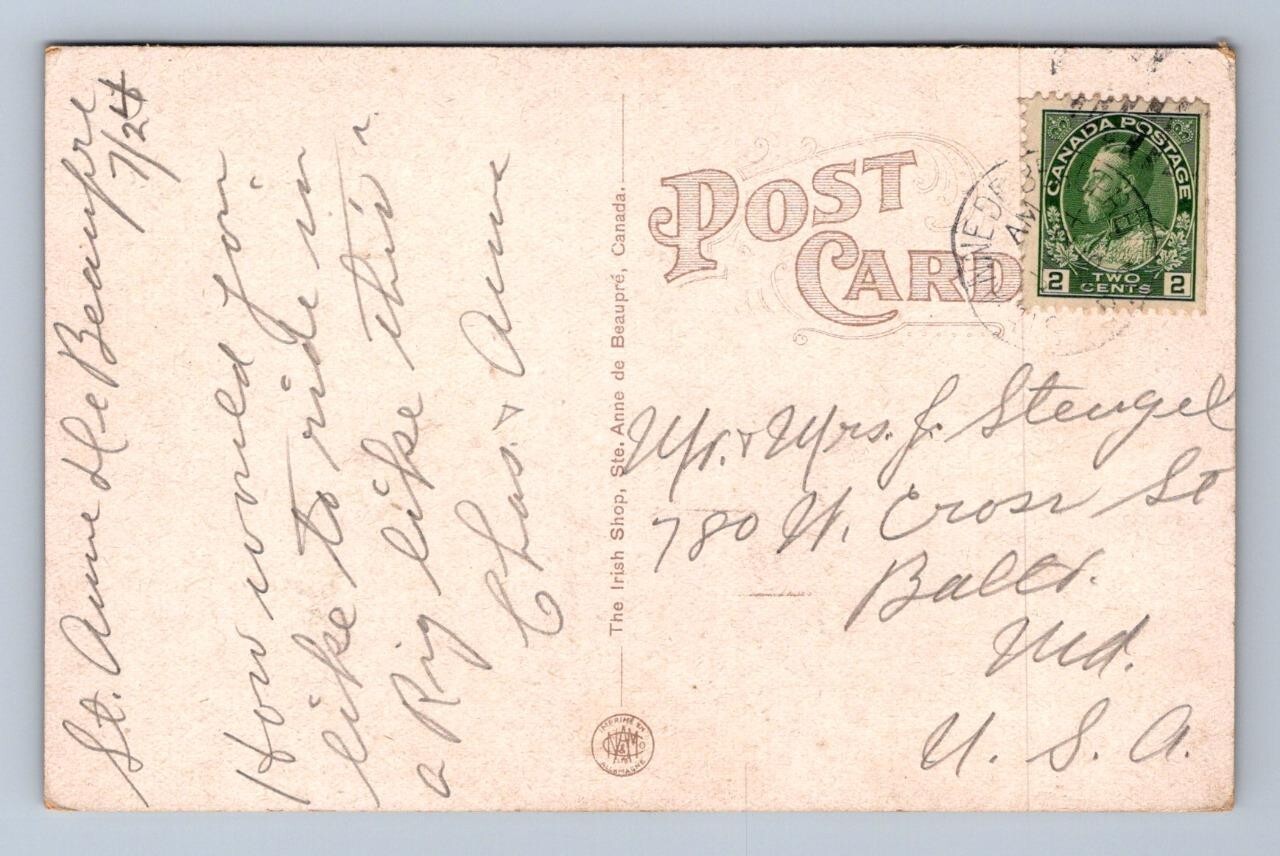 St. Anne de Beaupre
7/24
How would you
like to ride in
a Rig like this
Chas. & Anne
The Irish Shop, Ste. Anne de Beaupré, Canada.
POST
CARD
CANADA POSTAGE
2 TWO CENTS 2
AM
Mr. & Mrs. J. Stengel
780 W. Cross St
Balto.
Md.
U. S. A.
ALLEMAGNE